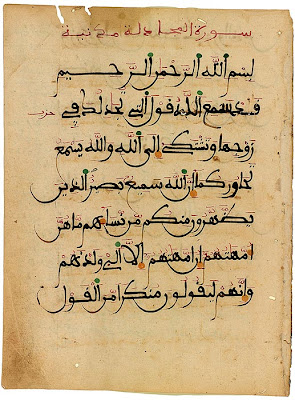 سورة المجادلة مدنية
بسم الله الرحمن الرحيم
قد سمع الله قول التي تجدلك في
حزب
زوجها وتشتكي إلى الله والله يسمع
تحاوركما إن الله سميع بصير الذين
يظهرون منكم من نسائهم ما هن
أمهتهم إن أمهتهم إلا الى ولدنهم
وإنهم ليقولون منكرا من القول